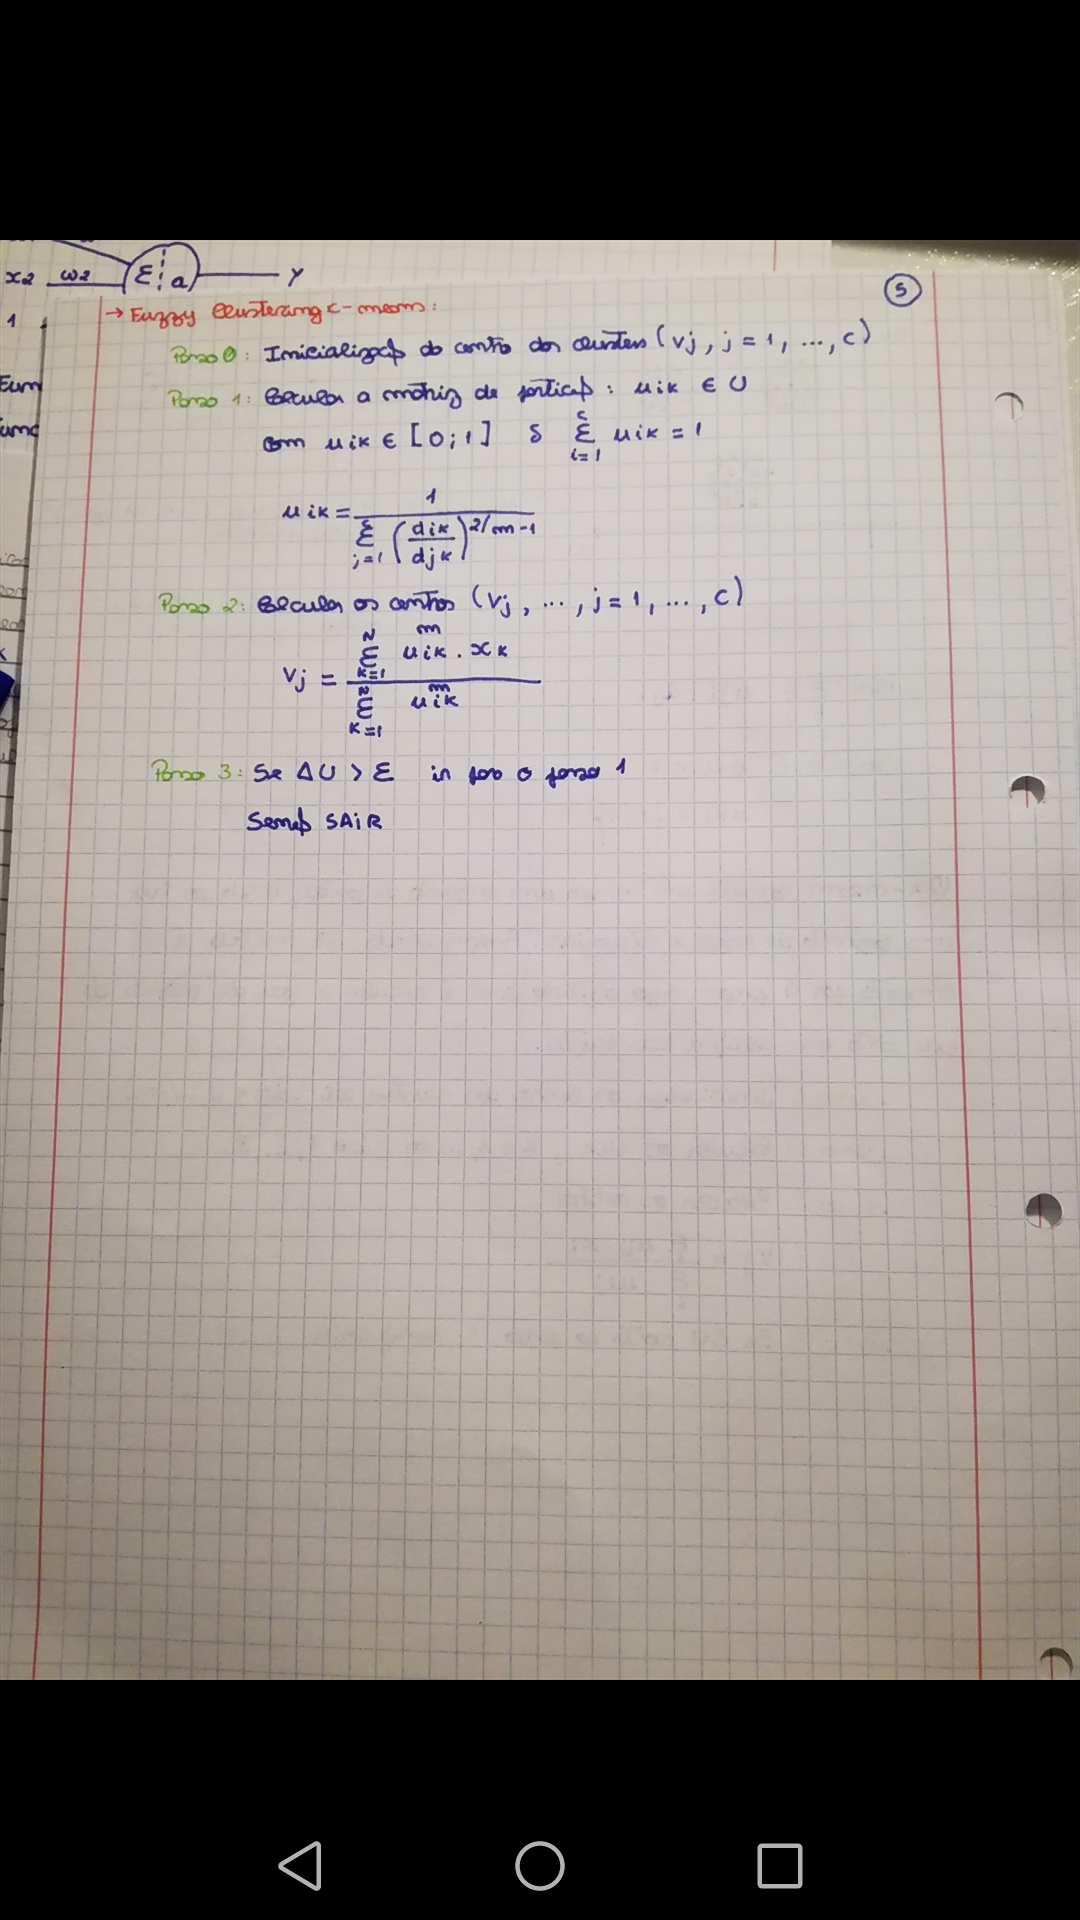 x2 w2 Σ a y
5
1
→ Fuzzy Clustering c-means:
Passo 0: Inicialização do centro dos clusters (vj, j = 1, ..., c)
Passo 1: Calcular a matriz de partição: uik ∈ U
com uik ∈ [0;1] & c Σ i=1 uik = 1
uik = 1 / c Σ j=1 (dik / djk)^2/m-1
Passo 2: Calcular os centros (vj, ..., j = 1, ..., c)
vj = N Σ k=1 uik^m . xk / N Σ k=1 uik^m
Passo 3: Se ΔU > ε ir para o passo 1
Senão SAIR